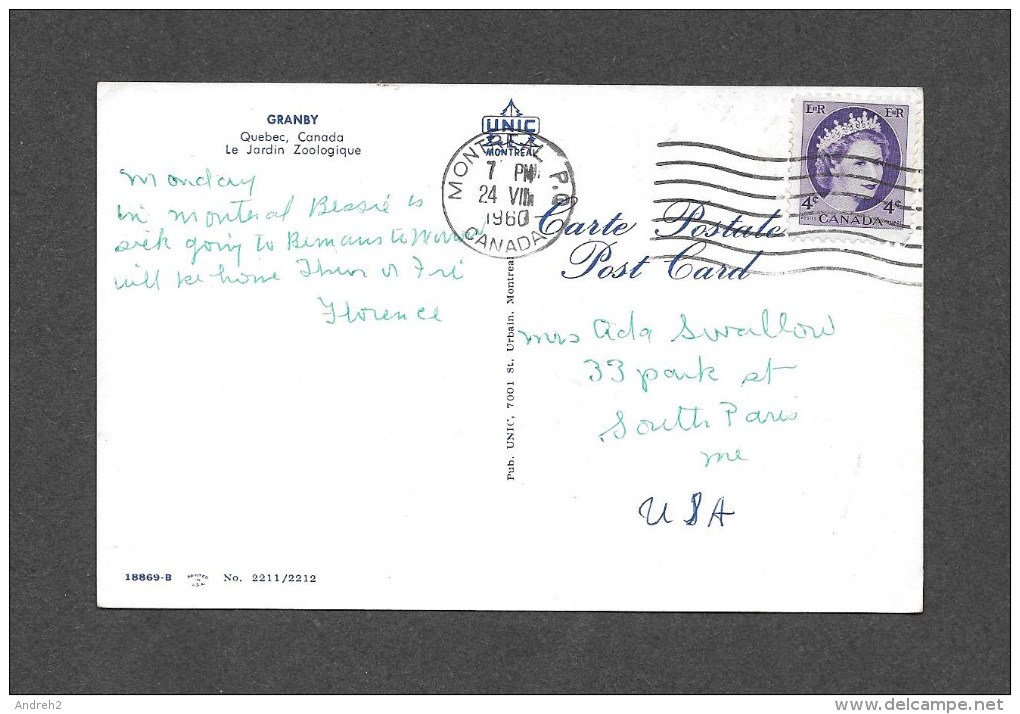 GRANBY
Quebec, Canada
Le Jardin Zoologique
Monday
in Montreal Bessie is
sick going to Bemans
will be home Thur or Fri
Florence
UNIC
MONTREAL
MONTREAL P.Q.
7 PM
24 VIII
1960
CANADA
EIIR EIIR
4¢ 4¢
CANADA
Carte Postale
Post Card
Pub. UNIC, 7001 St. Urbain, Montreal
Mrs Ada Swallow
33 park st
South Paris
me
USA
18869-B No. 2211/2212
Andreh2
www.delcampe.net